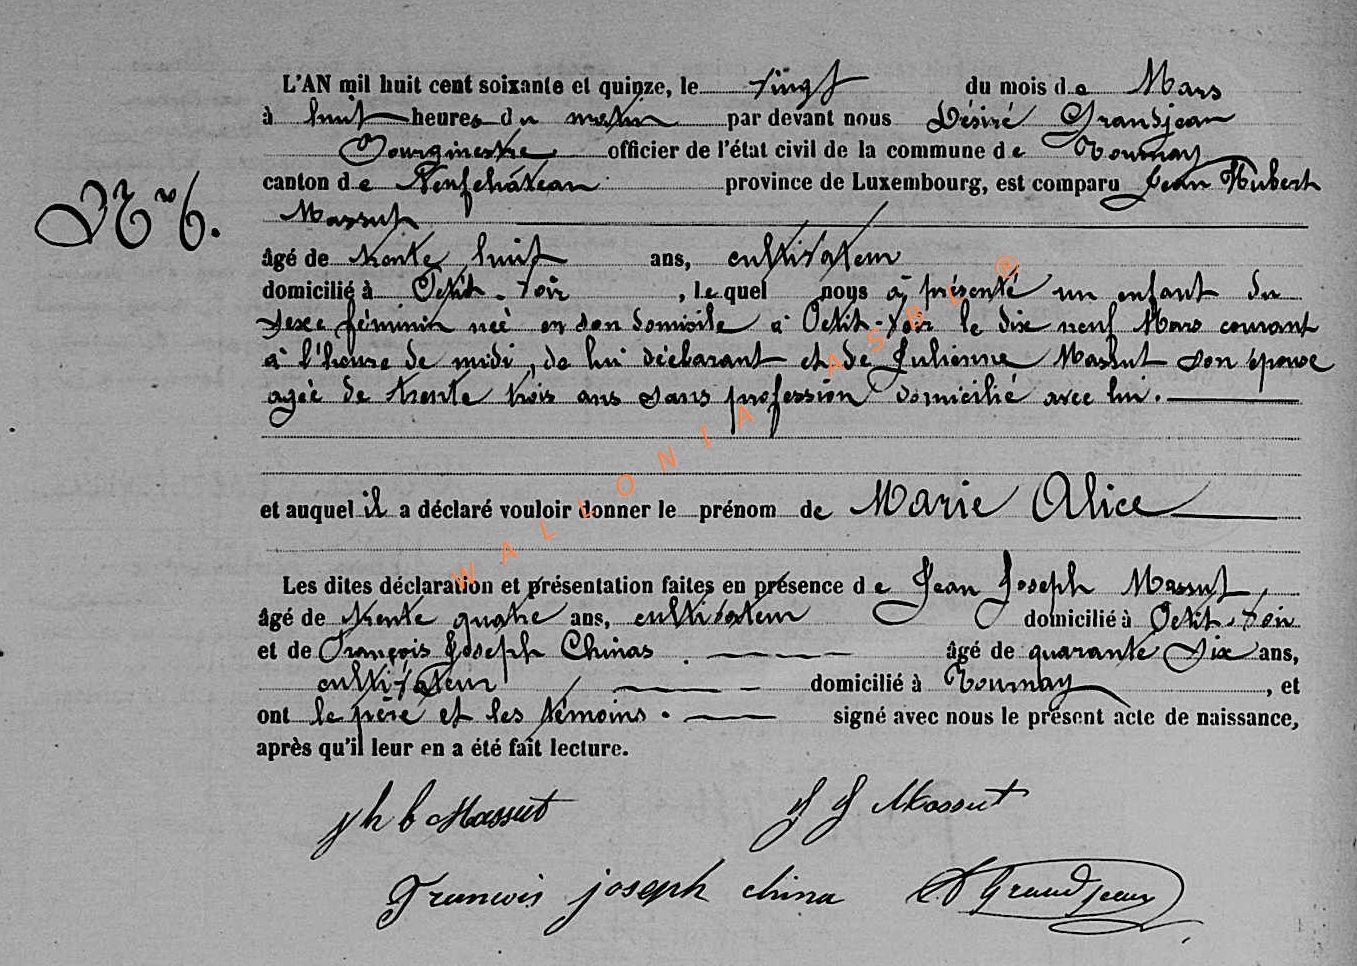 L'AN mil huit cent soixante et quinze, le vingt du mois de Mars
à huit heures du matin par devant nous Désiré Grandjean
Bourgmestre officier de l'état civil de la commune de Tournay
N° 6. canton de Neufchateau province de Luxembourg, est comparu Jean Hubert
Massut
âgé de trente huit ans, cultivateur
domicilié à Petit-Voir, lequel nous à présenté un enfant du
sexe féminin née en son domicile à Petit-Voir le dix neuf Mars courant
à l'heure de midi, de lui déclarant et de Julienne Massut son épouse
agée de trente trois ans sans profession domicilié avec lui.
et auquel il a déclaré vouloir donner le prénom de Marie Alice
Les dites déclaration et présentation faites en présence de Jean Joseph Massut,
âgé de trente quatre ans, cultivateur domicilié à Petit-Voir
et de François Joseph Chinas. âgé de quarante six ans,
cultivateur domicilié à Tournay, et
ont le père et les témoins. signé avec nous le présent acte de naissance,
après qu'il leur en a été fait lecture.
Massut J J Massut
Francois joseph china D Grandjean
WALLONIA ASBL ®